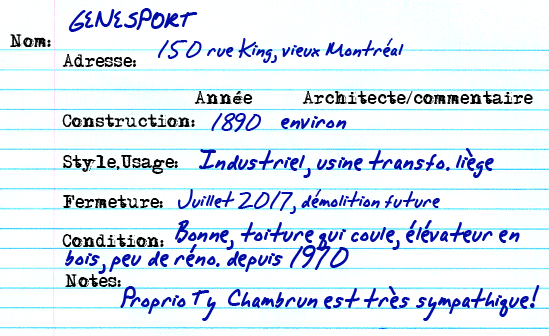 GENESPORT
Nom:
Adresse: 150 rue King, vieux Montréal
Année Architecte/commentaire
Construction: 1890 environ
Style,Usage: Industriel, usine transfo. liège
Fermeture: Juillet 2017, démolition future
Condition: Bonne, toiture qui coule, élévateur en
bois, peu de réno. depuis 1970
Notes:
Proprio Ty Chambrun est très sympathique!